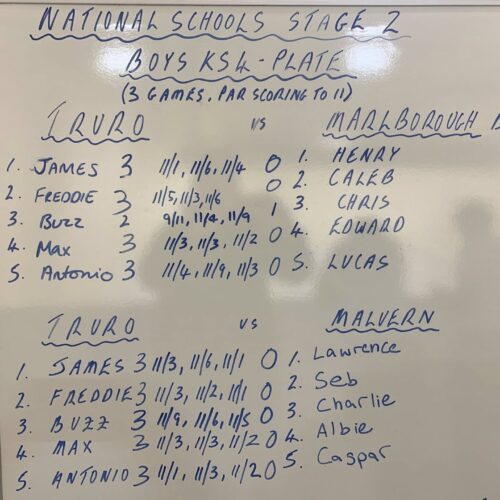 NATIONAL SCHOOLS STAGE 2
BOYS KS4 - PLATE
(3 GAMES. PAR SCORING TO 11)
TRURO VS MARLBOROUGH
1. JAMES 3 11/1, 11/6, 11/4 0 1. HENRY
2. FREDDIE 3 11/5, 11/3, 11/6 0 2. CALEB
3. BUZZ 2 9/11, 11/4, 11/9 1 3. CHRIS
4. MAX 3 11/3, 11/3, 11/2 0 4. EDWARD
5. Antonio 3 11/4, 11/9, 11/3 0 5. LUCAS
TRURO VS MALVERN
1. JAMES 3 11/3, 11/6, 11/1 0 1. Lawrence
2. FREDDIE 3 11/3, 11/2, 11/1 0 2. Seb
3. BUZZ 3 11/9, 11/6, 11/5 0 3. Charlie
4. MAX 3 11/3, 11/3, 11/2 0 4. Albie
5. ANTONIO 3 11/1, 11/3, 11/2 0 5. Caspar